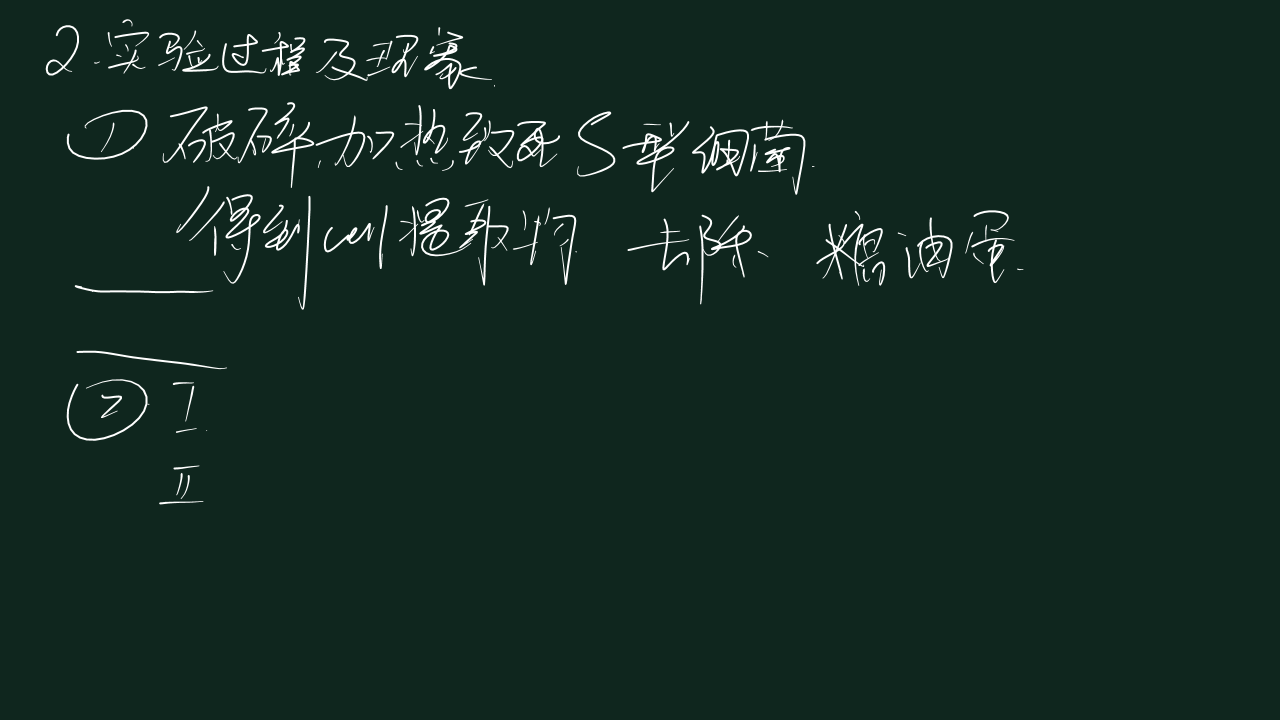 2.实验过程及现象.
① 破碎加热致死S型细菌.
得到cell提取物 去除 糖油蛋.
② I
II